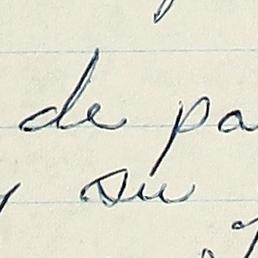 de pa
su